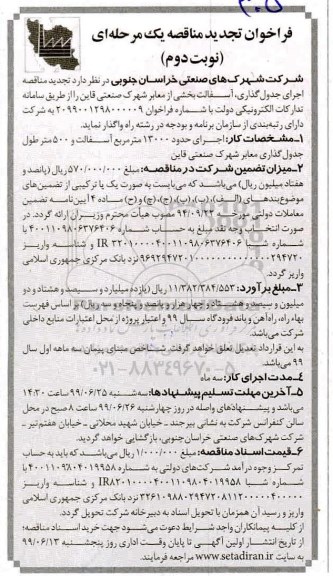 فراخوان تجدید مناقصه یک مرحله‌ای
(نوبت دوم)
شرکت شهرک‌های صنعتی خراسان جنوبی در نظر دارد تجدید مناقصه
اجرای جدول‌گذاری، آسفالت بخشی از معابر شهرک صنعتی قاین را از طریق سامانه
تدارکات الکترونیکی دولت با شماره فراخوان ۲۰۹۹۰۰۱۲۹۸۰۰۰۰۰۹ به شرکت
دارای رتبه‌بندی از سازمان برنامه و بودجه در رشته راه واگذار نماید.
۱-مشخصات کار: اجرای حدود ۱۳۰۰۰ مترمربع آسفالت و ۵۰۰ متر طول
جدول‌گذاری معابر شهرک صنعتی قاین
۲-میزان تضمین شرکت در مناقصه: مبلغ ۵۷۰/۰۰۰/۰۰۰ ریال (پانصد و
هفتاد میلیون ریال) می‌باشد که می‌بایست به صورت یک یا ترکیبی از تضمین‌های
موضوع بندهای (الف)، (ب)، (پ)، (ج)، (چ) و (ح) ماده ۴ آیین‌نامه تضمین
معاملات دولتی مورخ ۹۴/۰۹/۲۲ مصوب هیأت محترم وزیران ارائه گردد. در
صورت انتخاب وجه نقد مبلغ به حساب شماره ۴۰۰۱۱۰۹۸۰۶۳۷۶۴۰۶ با
شماره شبا
و شناسه واریز
نزد بانک مرکزی جمهوری اسلامی
واریز گردد.
۳-مبلغ برآورد: ۱۱/۳۸۲/۳۸۴/۵۵۳ ریال (یازده میلیارد و سیصد و هشتاد و دو
میلیون و سیصد و هشتاد و چهار هزار و پانصد و پنجاه و سه ریال) بر اساس فهرست
بهاء راه، راه‌آهن و باند فرودگاه سال ۹۹ و اعتبار پروژه از محل اعتبارات منابع داخلی
شرکت می‌باشد.
به این قرارداد تعدیل تعلق خواهد گرفت. شاخص مبنای پیمان سه ماهه اول سال
۹۹ می‌باشد.
۴-مدت اجرای کار: سه ماه
۵-آخرین مهلت تسلیم پیشنهادها: سه‌شنبه ۹۹/۰۶/۲۵ ساعت ۱۴:۳۰
می‌باشد و پیشنهادهای واصله در روز چهارشنبه ۹۹/۰۶/۲۶ ساعت ۸ صبح در محل
سالن کنفرانس شرکت به نشانی بیرجند - خیابان شهید محلاتی - خیابان هفتم تیر -
شرکت شهرک‌های صنعتی خراسان جنوبی، بازگشایی خواهد گردید.
۶-قیمت اسناد مناقصه: مبلغ ۱/۰۰۰/۰۰۰ ریال می‌باشد که باید به حساب
تمرکز وجوه درآمد شرکت‌های دولتی به شماره ۴۰۰۱۱۰۹۸۰۴۰۱۹۹۵۸ با
شماره شبا
و شناسه واریز
نزد بانک مرکزی جمهوری اسلامی
واریز و رسید آن همزمان با تحویل اسناد به دبیرخانه شرکت تحویل گردد.
از کلیه پیمانکاران واجد شرایط دعوت می‌شود جهت خرید اسناد مناقصه؛
از تاریخ انتشار اولین آگهی تا پایان وقت اداری روز پنجشنبه ۹۹/۰۶/۱۳
به سایت www.setadiran.ir مراجعه فرمایند.
۰۲۱-۸۸۳۴۹۶۷۰-۵